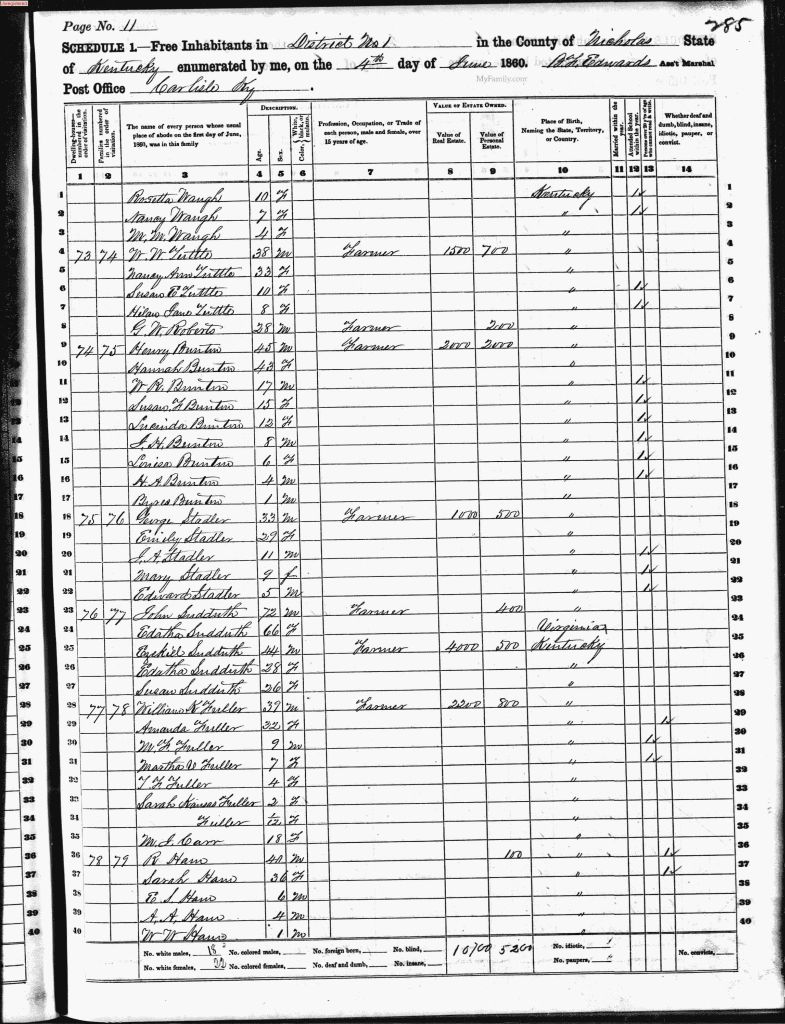 Page No. 11
285
SCHEDULE 1.—Free Inhabitants in District No 1 in the County of Nicholas State
of Kentucky enumerated by me, on the 4th day of June 1860. B. F. Edwards Ass't Marshal
MyFamily.com
Post Office Carlisle Ky.
Dwelling-houses—numbered in the order of visitation.
Families numbered in the order of visitation.
The name of every person whose usual place of abode on the first day of June, 1860, was in this family
DESCRIPTION.
Age.
Sex.
Color, White, black, or mulatto.
Profession, Occupation, or Trade of each person, male and female, over 15 years of age.
VALUE OF ESTATE OWNED.
Value of Real Estate.
Value of Personal Estate.
Place of Birth, Naming the State, Territory, or Country.
Married within the year.
Attended School within the year.
Whether deaf and dumb, blind, insane, idiotic, pauper, or convict.
1 2 3 4 5 6 7 8 9 10 11 12 13 14
1 Rosetta Waugh 10 F Kentucky 1 1
2 Nancy Waugh 7 F " 1 2
3 M. M. Waugh 4 F " 3
4 73 74 W. W. Tuttle 38 M Farmer 1500 700 " 4
5 Nancy Ann Tuttle 33 F " 5
6 Susan E Tuttle 10 F " 1 6
7 Jane Tuttle 8 F " 1 7
8 G. W. Roberts 28 M Farmer 200 " 8
9 74 75 Henry Bunton 45 M Farmer 2000 2000 " 9
10 Hannah Bunton 43 F " 10
11 W R. Bunton 17 M " 1 11
12 Susan F Bunton 15 F " 1 12
13 Lucinda Bunton 12 F " 1 13
14 J. H. Bunton 8 M " 1 14
15 Louisa Bunton 6 F " 1 15
16 H. A Bunton 4 M " 1 16
17 Bunton 1 M " 17
18 75 76 George Stadler 33 M Farmer 1000 500 " 18
19 Emily Stadler 29 F " 19
20 J. A. Stadler 11 M " 1 20
21 Mary Stadler 9 f " 1 21
22 Edward Stadler 5 M " 1 22
23 76 77 John Sudduth 72 M Farmer 400 " 23
24 Edatha Sudduth 66 F Virginia 24
25 Ezekiel Sudduth 44 M Farmer 4000 500 Kentucky 25
26 Edatha Sudduth 28 F " 26
27 Susan Sudduth 26 F " 27
28 77 78 William K Fuller 39 M Farmer 2200 800 " 28
29 Amanda Fuller 32 F " 1 29
30 M. F. Fuller 9 M " 1 30
31 Martha V Fuller 7 F " 1 31
32 T F Fuller 4 F " 32
33 Sarah Kansas Fuller 2 F " 33
34 Fuller F " 34
35 M. J. Carr 18 F " 35
36 78 79 R Ham 40 M 100 " 1 36
37 Sarah Ham 36 F " 1 37
38 E. S. Ham 6 M " 38
39 A. A. Ham 4 M " 39
40 W W Ham 1 M " 40
No. white males, 18 No. colored males, No. foreign born, No. blind, 10700 5200 No. idiotic, No. convicts,
No. white females, 22 No. colored females, No. deaf and dumb, No. insane, No. paupers,